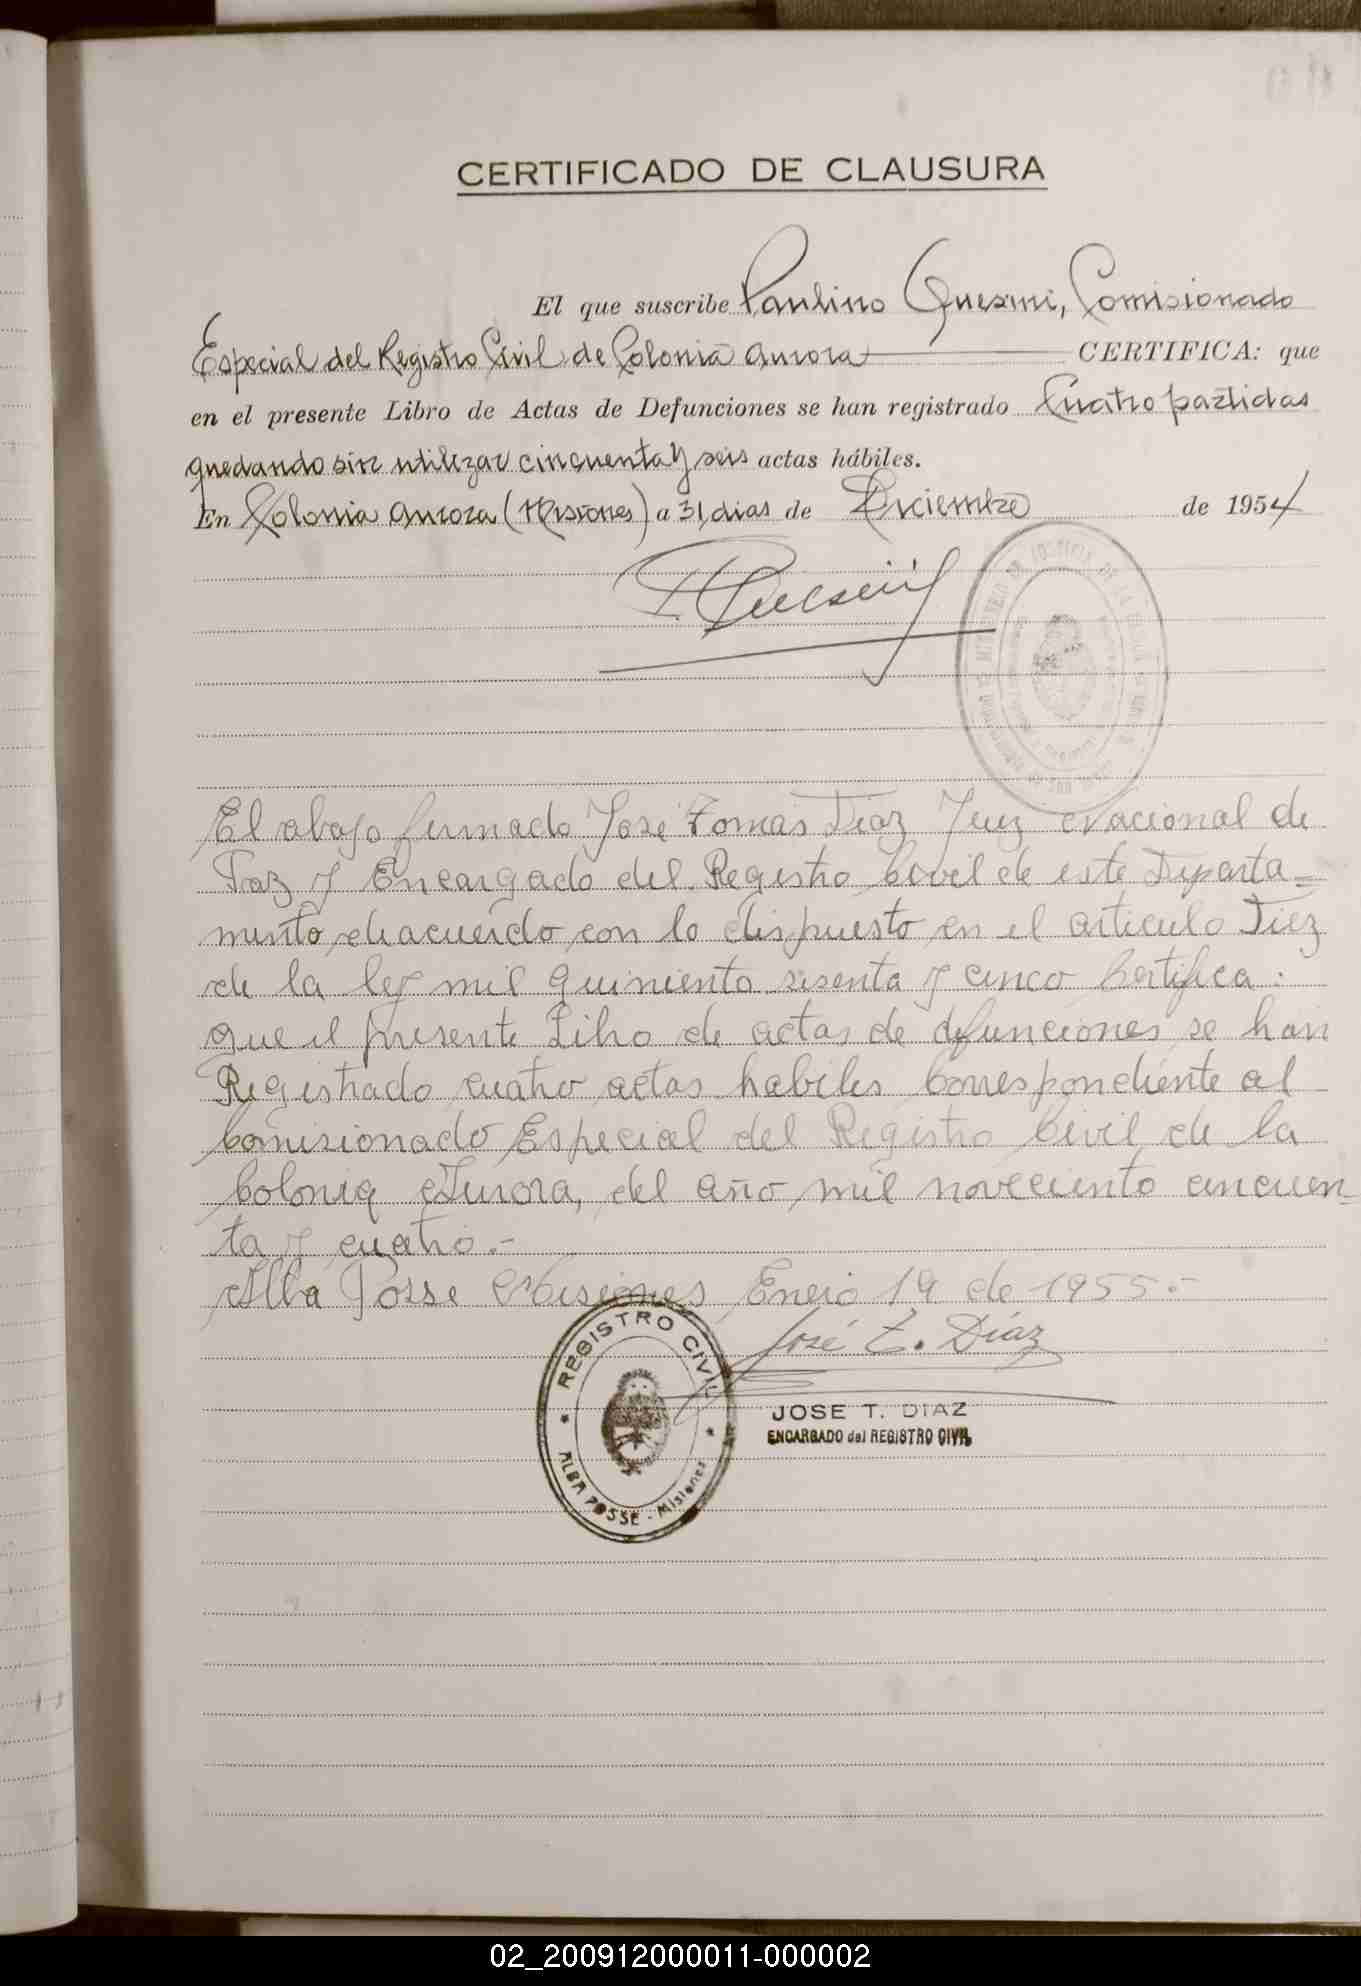 CERTIFICADO DE CLAUSURA
El que suscribe Paulino Quesini, Comisionado
Especial del Registro Civil de Colonia Aurora CERTIFICA: que
en el presente Libro de Actas de Defunciones se han registrado Cuatro partidas
quedando sin utilizar cincuenta y seis actas hábiles.
En Colonia Aurora (Misiones) a 31 dias de Diciembre de 1954
El abajo firmado José Tomás Diaz Juez Nacional de
Paz y Encargado del Registro Civil de este Departa=
mento, de acuerdo con lo dispuesto en el articulo Diez
de la ley mil quiniento sesenta y cinco Certifica:
que el presente Libro de actas de defunciones se han
Registrado cuatro actas habiles Correspondiente al
Comisionado Especial del Registro Civil de la
Colonia Aurora, del año mil noveciento cincuen
ta y cuatro.-
Alba Posse Misiones, Enero 19 de 1955.-
José T. Díaz
REGISTRO CIVIL
ALBA POSSE - Misiones
JOSE T. DIAZ
ENCARGADO del REGISTRO CIVIL
02_200912000011-000002